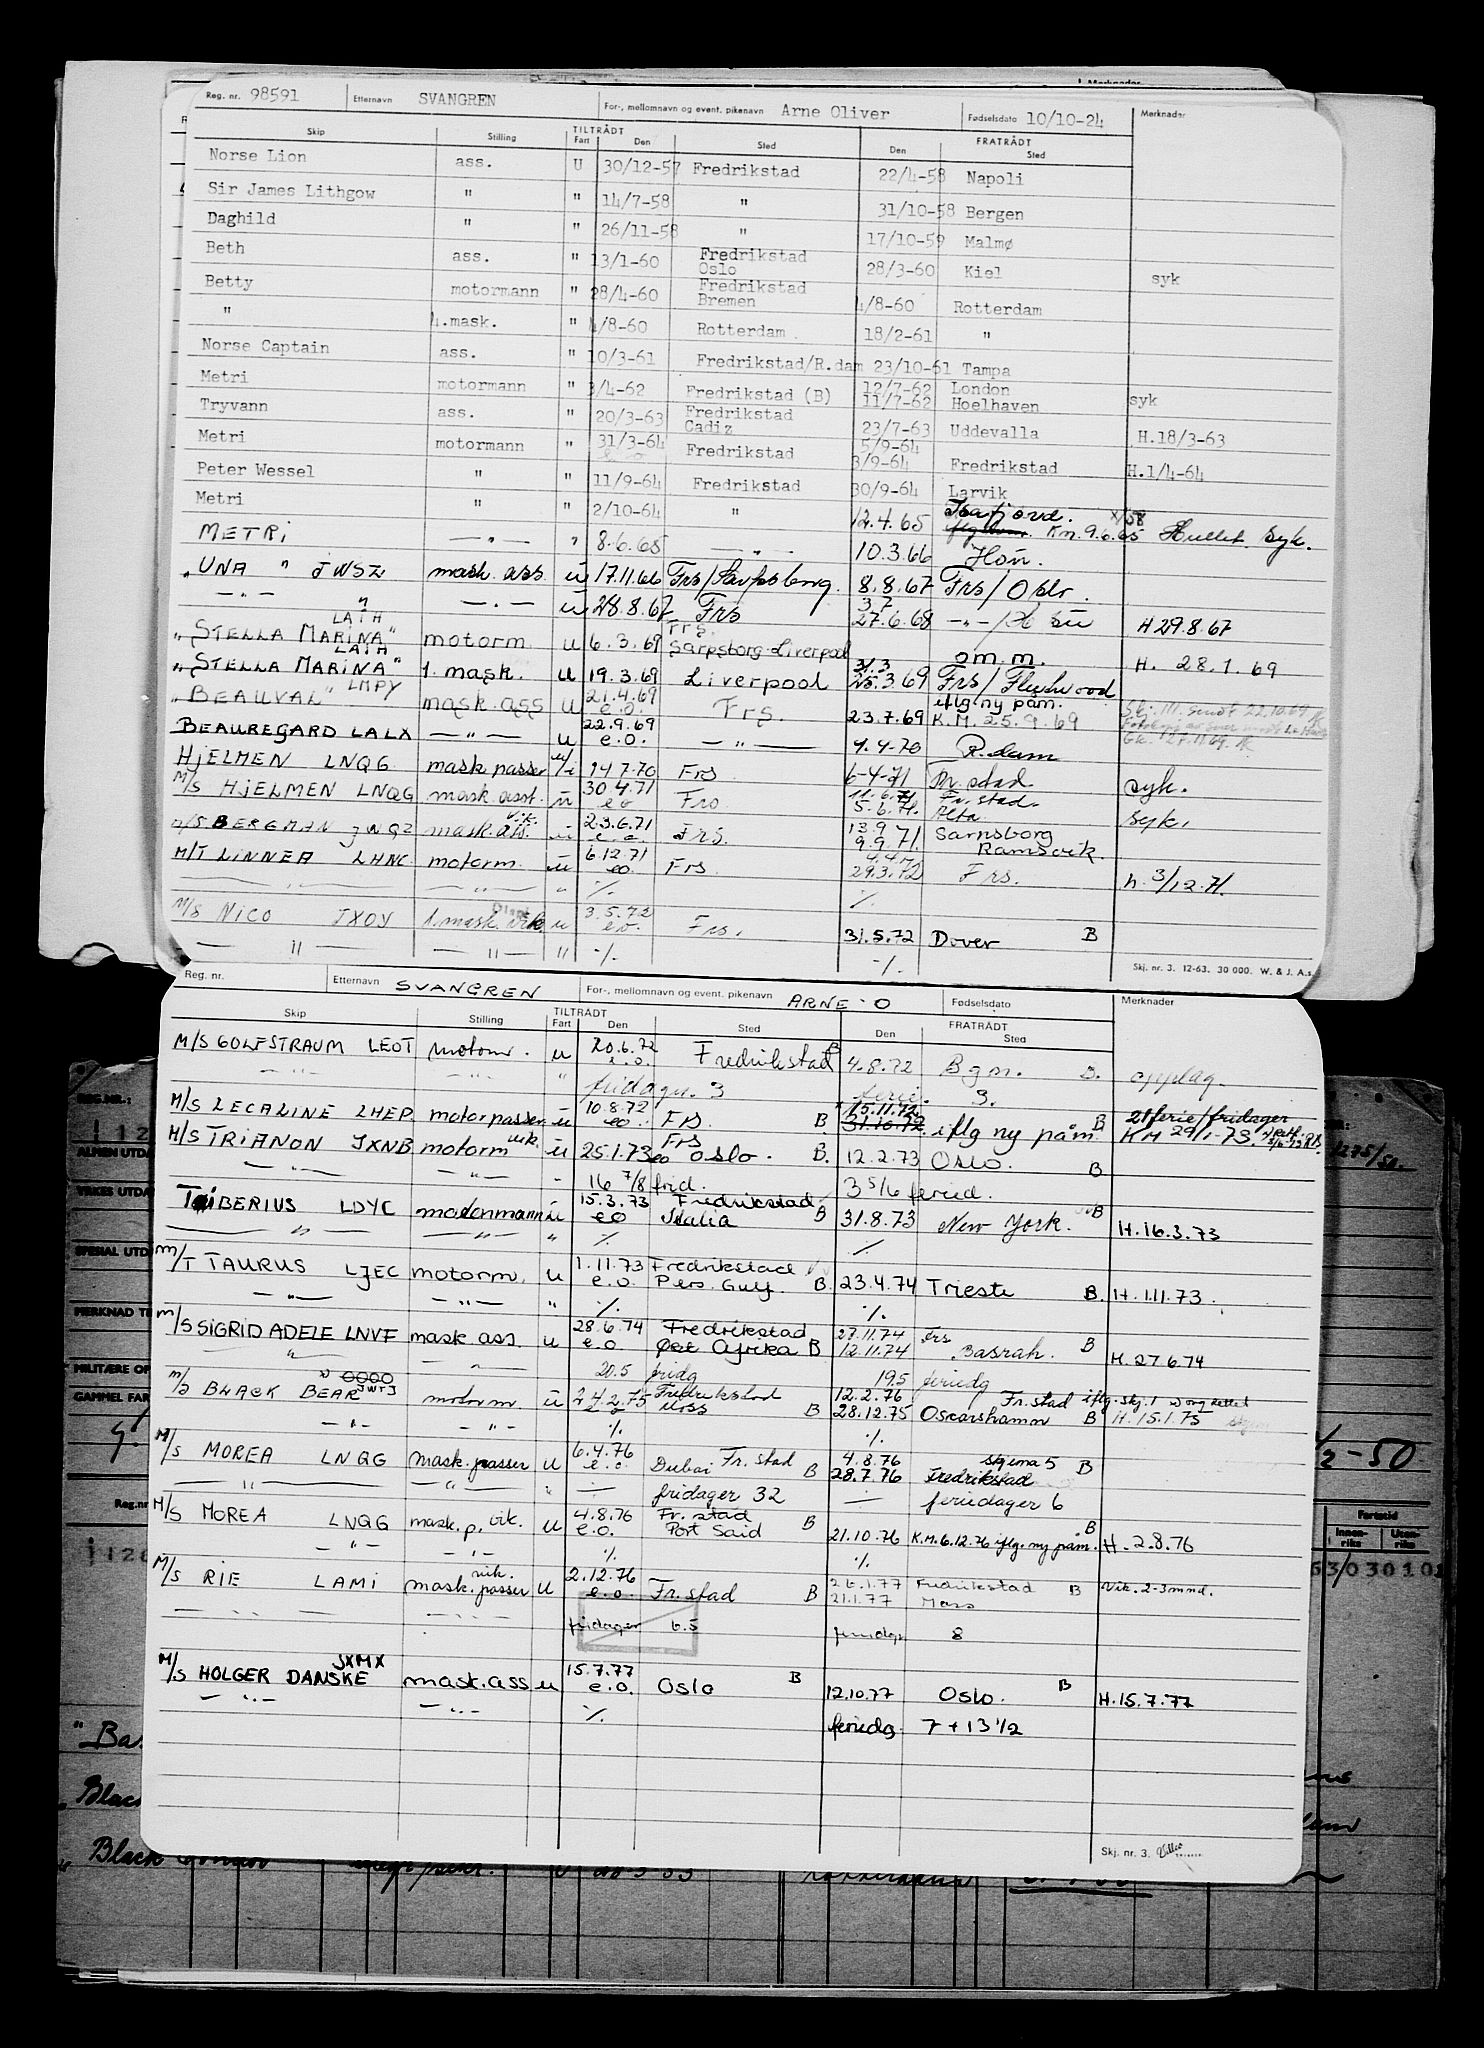 Merknader
Reg. nr. 98591 Etternavn SVANGREN For-, mellomnavn og event. pikenavn Arne Oliver Fødselsdato 10/10-24 Merknader
Skip Stilling TILTRÅDT Fart Den Sted FRATRÅDT Den Sted
Norse Lion ass. U 30/12-57 Fredrikstad 22/4-58 Napoli
Sir James Lithgow " " 14/7-58 " 31/10-58 Bergen
Daghild " " 26/11-58 " 17/10-59 Malmø
Beth ass. " 13/1-60 Fredrikstad Oslo 28/3-60 Kiel syk
Betty motormann " 28/4-60 Fredrikstad Bremen 4/8-60 Rotterdam
" 4.mask. " 4/8-60 Rotterdam 18/2-61 "
Norse Captain ass. " 10/3-61 Fredrikstad/R.dam 23/10-61 Tampa
Metri motormann " 3/4-62 Fredrikstad (B) 12/7-62 London 11/7-62 Hoelhaven syk
Tryvann ass. " 20/3-63 Fredrikstad Cadiz 23/7-63 Uddevalla H.18/3-63
Metri motormann " 31/3-64 e o Fredrikstad 5/9-64 3/9-64 Fredrikstad H.1/4-64
Peter Wessel " " 11/9-64 Fredrikstad 30/9-64 Larvik
Metri " " 2/10-64 " 12.4.65 Isafjord. K.m. 9.6.65 syk.
METRI — " — " 8.6.65 — " — 10.3.66
"UNA" JWSZ mask. ass. u 17.11.66 Frs/Sarpsborg 8.8.67 Frs/Oslo.
— " — " — " — u 28.8.67 Frs 27.6.68 H 29.8.67
"STELLA MARINA" LATH motorm. u 6.3.69 Frs. Sarpsborg-Liverpool om.m. H. 28.1.69
"STELLA MARINA" LATH 1. mask. u 19.3.69 Liverpool 31.3 25.3.69 Frs/Fleetwood
"BEAUVAL" LMPY mask. ass u 21.4.69 e.o. Frs. 23.7.69 iflg ny påm. K.M. 25.9.69
BEAUREGARD LALX — " — u 22.9.69 e.o. — " — 4.4.70 R.dam
HJELMEN LNQG mask passer u/i 14 7.70 Frs 6-4-71 Fr stad syk.
M/S HJELMEN LNQG mask asst. u 30 4.71 eo Frs 11.6.71 Fr. stad. 5.6.71. Alta syk.
M/S BERGMAN JWQZ mask. ass. vik. u 23.6.71 e.o. Frs. 13 9 9.9.71. Sarpsborg Ramsvik.
M/T LINNEA LHNC motorm. u 6.12.71 eo. Frs 4.4 29.3.72 Frs. h. 3/12.71.
— " — " ./. ./.
M/S NICO JXOY 1. mask. vik. u 3.5.72 e.o. Frs. 31.5.72 Dover B
— " — — " — " ./. ./.
Skj. nr. 3. 12-63. 30 000. W. & J. A.s.
Reg. nr. Etternavn SVANGREN For-, mellomnavn og event. pikenavn ARNE-O Fødselsdato Merknader
Skip Stilling TILTRÅDT Fart Den Sted FRATRÅDT Den Sted
M/S GOLFSTRAUM LEOT motorm. u 20.6.72 e.o. Fredrikstad B 4.8.72 Bgn. B. opplag.
— " — — " — " fridager. 3 ferie. 3.
M/S LECALINE LHEP. motorpasser. u 10.8.72 eo. Frs. B 15.11.72 31.10.72 iflg ny påm B 21 ferie/fridager KM 29/1-73.
M/S TRIANON JXNB motorm vik. u 25.1.73 eo Frs Oslo. B. 12.2.73 Oslo. B
— " — — " — " 16 7/8 frid. 3 5/6 feried.
TIBERIUS LDYC motormann u 15.3.73 eo Fredrikstad Italia B 31.8.73 New York. B H.16.3.73
— " — — " — " ./. ./.
M/T TAURUS LJEC motorm. u 1.11.73 e.o. Fredrikstad Pers. Gulf. B. 23.4.74 Trieste B. H.1.11.73.
— " — — " — " ./. ./.
M/S SIGRID ADELE LNVF mask ass. u 28.6.74 e.o. Fredrikstad Øst Afrika B 27.11.74 Frs 12.11.74 Basrah. B H. 27 6.74
" — " — 20.5 fridg 19.5 feriedg
M/S BLACK BEAR JWTJ motorm. u 24.2.75 e o Fredrikstad Moss B 12.2.76 Fr.stad iflg. skj. 1 28.12.75 Oscarshamn B H. 15.1.75
— " — — " — ./. ./.
M/S MOREA LNQG mask.passer u 6.4.76 e.o. Dubai Fr. stad B 4.8.76 skjema 5 28.7.76 Fredrikstad B
— " — — " — " — fridager 32 — feriedager 6
M/S MOREA LNQG mask.p. vik. u 4.8.76 e.o. Fr. stad Port Said B 21.10.76 K.M. 6.12.76 iflg. ny påm. B H. 2.8.76
— " — — " — ./. ./.
M/S RIE LAMI mask.passer vik. u 2.12.76 e.o. Fr. stad B 26.1.77 Fredrikstad 21.1.77 Moss B Vik. 2-3 mnd.
— " — — " — fridager 6.5 feriedgr 8
M/S HOLGER DANSKE JXMX mask.ass u 15.7.77 e.o. Oslo B 12.10.77 Oslo. B H.15.7.77
— " — — " — ./. feriedg 7 + 13 1/2
Skj. nr. 3.
REG.NR.:
ALMEN UTDA
YRKES UTDA
SPESIAL UTD
MERKNAD T
MILITÆRE OP
GAMMEL FAR
Reg.nr
1275/51.
1/2-50
Fartstid
Innen-riks Uten-riks
"Ba
Black
Black Condor